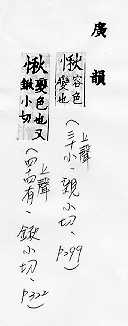 廣韻
愀 容色變也
(上聲三十小、親小切、P299)
愀 變色也又鍬小切
(上聲四十四有、鍬小切、P322)